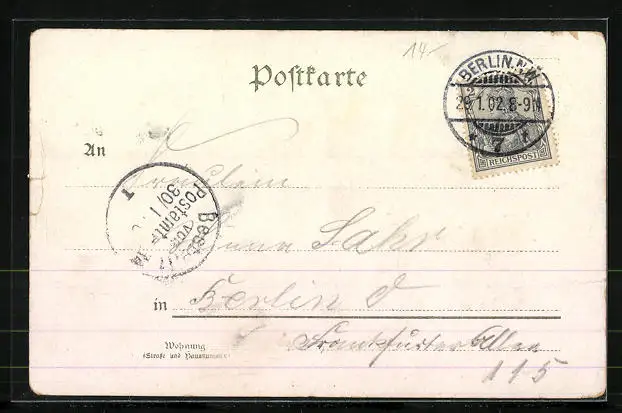 14-
Postkarte
BERLIN.N.W.
29.1.02.8-9N
* 7 *
REICHSPOST
An
Fräulein
1
Postamt
30/1
Sahr
in Berlin O
Wohnung
(Straße und Hausnummer)
Frankfurter Allee
115